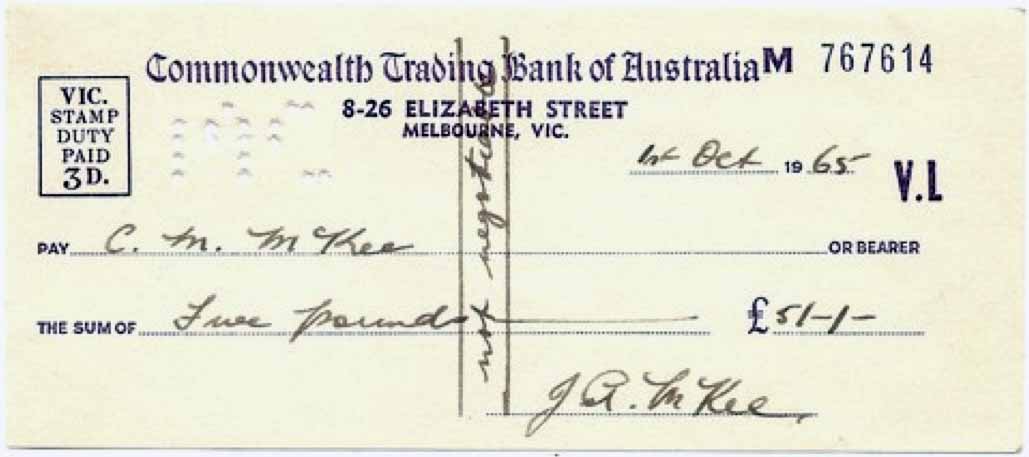 Commonwealth Trading Bank of Australia M 767614
8-26 ELIZABETH STREET
MELBOURNE, VIC.
VIC.
STAMP
DUTY
PAID
3D.
1st Oct 1965
V.L
PAY C. M. McKee OR BEARER
THE SUM OF Five pounds £5/-/-
not negotiable
J A. McKee